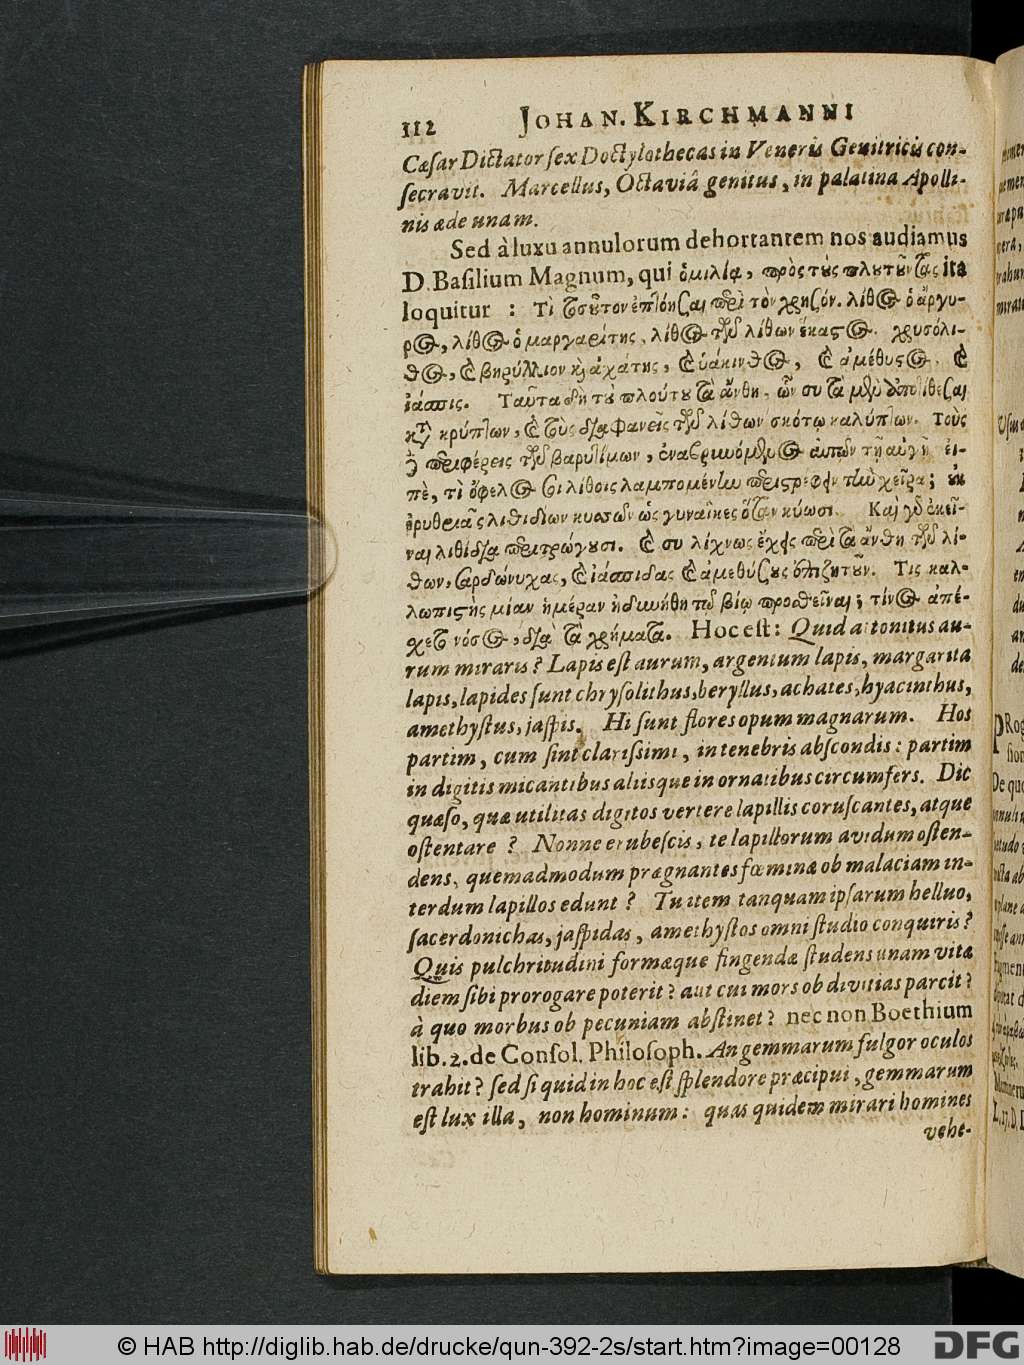 112 JOHAN. KIRCHMANNI
Cæſar Dictator ſex Doctylothecas in Veneris Genitricis con-
ſecravit. Marcellus, Octaviâ genitus, in palatina Apolli-
nis æde unam.
Sed à luxu annulorum dehortantem nos audiamus
D. Baſilium Magnum, qui ὁμιλίᾳ, πρὸς τὺς πλυτῦντας ita
loquitur : Τὶ τοσῦτον ἐπτόησαι περὶ τὸν χρησόν. λίθος ὁ ἄργυ-
ρος, λίθος ὁ μαργαρίτης, λίθος τῶν λίθων ἕκαστος. χρυσόλι-
θος, καὶ βηρύλλιον καὶ ἀχάτης, καὶ ὑάκινθος, καὶ ἀμέθυσος. καὶ
ἰάσπις. Ταῦτα δὴ τῦ πλούτυ τὰ ἄνθη, ὧν συ τὰ μὲν ἀποτίθεσαι
κατακρύπτων, καὶ τοὺς διαφανεῖς τῶν λίθων σκότῳ καλύπτων. Τοὺς
δὲ περιφέρεις τῶν βαρυτίμων, ἐναβρυνόμενος αὐτῶν τῇ αὐγῇ εἰ-
πὲ, τὶ ὄφελος σοι λίθοις λαμπομένην περιστρεφειν τὴν χεῖρα; ἐκ
ἐρυθριᾷς λιθιδίων κυσσῶν ὡς γυναῖκες ὅταν κύωσι. Καὶ γὸ ἐκεῖ-
ναι λιθίδια περιτρώγυσι. καὶ συ λίχνως ἔχεις περὶ τὰ ἄνθη τῶν λί-
θων, σαρδώνυχας, καὶ ἰάσπιδας καὶ ἀμεθύσυς ἐπιζητῦν. Τις καλ-
λωπιστὴς μίαν ἡμέραν ἠδυνήθη τῷ βίῳ προσθεῖναι; τίνος ἀπέ-
χετο νόσος, διὰ τὰ χρήματα. Hoc eſt: Quid attonitus au-
rum miraris? Lapis eſt aurum, argentum lapis, margarita
lapis, lapides ſunt chryſolithus, beryllus, achates, hyacinthus,
amethyſtus, jaſpis. Hi ſunt flores opum magnarum. Hos
partim, cum ſint clariſſimi, in tenebris abſcondis: partim
in digitis micantibus aliisque in ornatibus circumfers. Dic
quæſo, quæ utilitas digitos vertere lapillis coruſcantes, atque
oſtentare ? Nonne erubeſcis, te lapillorum avidum oſten-
dens, quemadmodum prægnantes fœminæ ob malaciam in-
terdum lapillos edunt ? Tu item tanquam ipſarum helluo,
ſacerdonichas, jaſpidas, amethyſtos omni ſtudio conquiris?
Quis pulchritudini formæque fingendæ ſtudens unam vitæ
diem ſibi prorogare poterit? aut cui mors ob divitias parcit?
à quo morbus ob pecuniam abſtinet? nec non Boethium
lib. 2. de Conſol. Philoſoph. An gemmarum fulgor oculos
trahit? ſed ſi quid in hoc eſt ſplendore præcipui, gemmarum
eſt lux illa, non hominum: quas quidem mirari homines
vehe-
© HAB http://diglib.hab.de/drucke/qun-392-2s/start.htm?image=00128
DFG